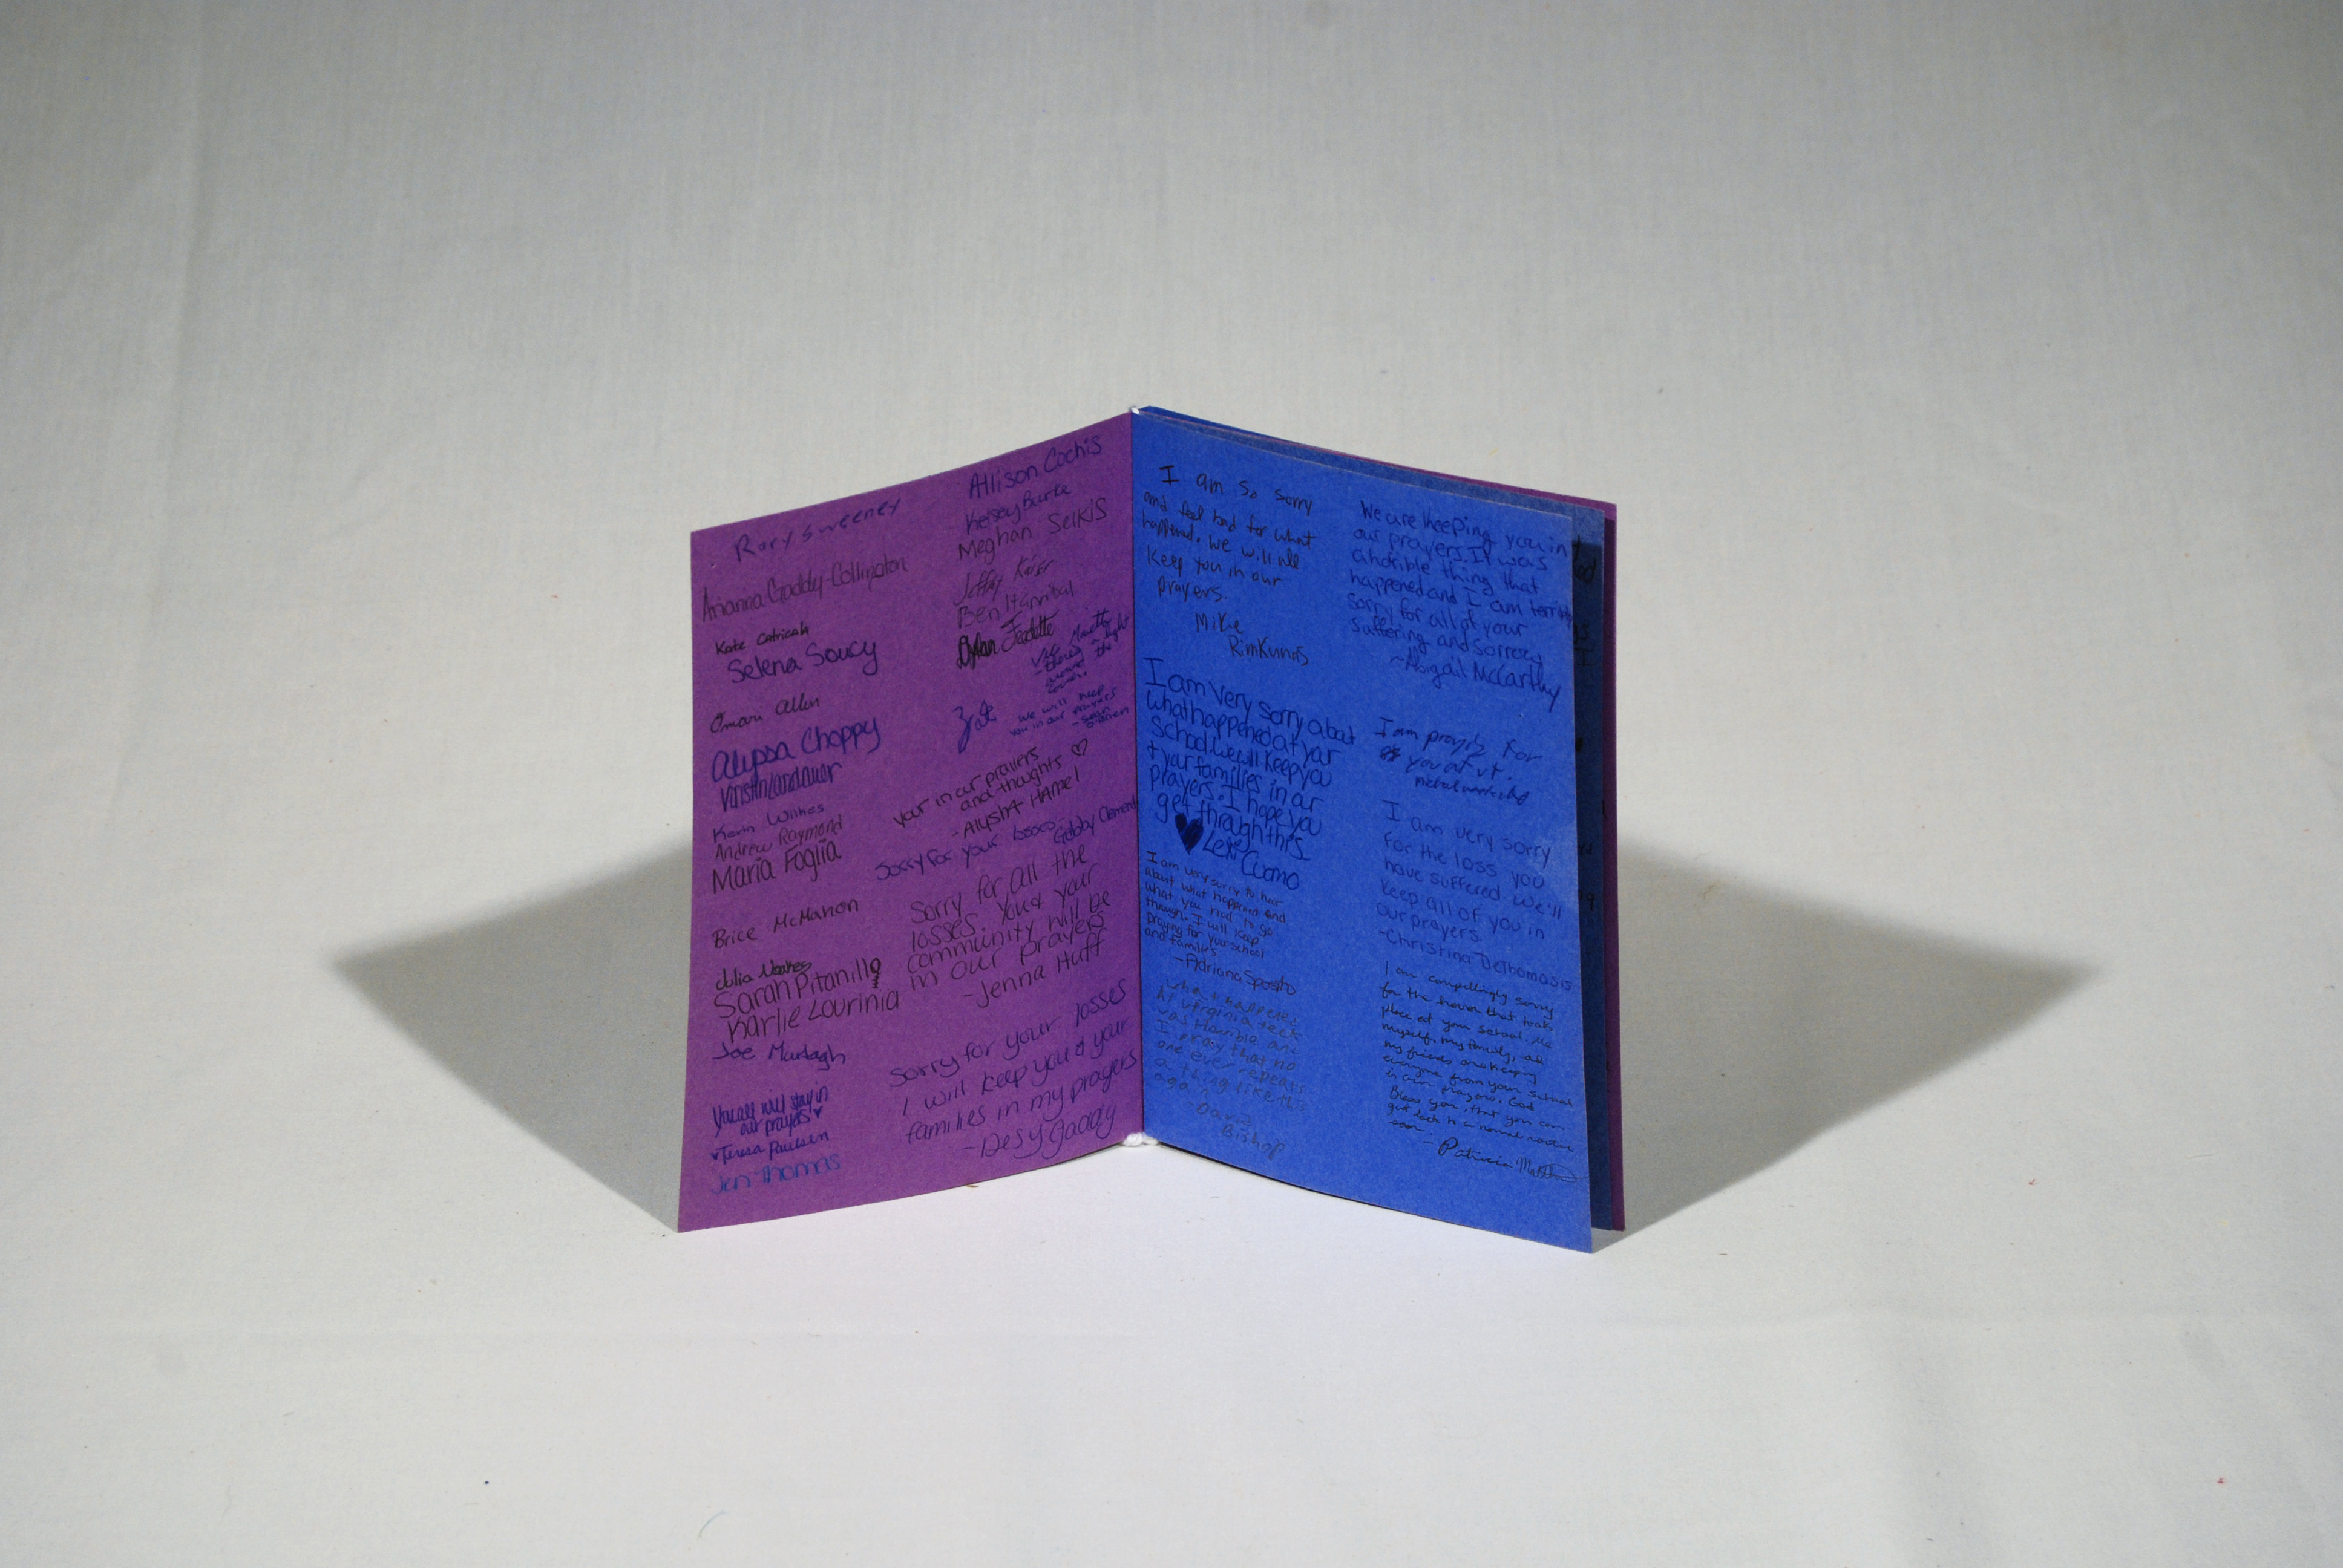 Rory Sweeney
Arianna Gaddy-Collington
Kate Catricala
Selena Soucy
Omari Allen
Alyssa Choppy
Kristin Landauer
Kevin Wilkes
Andrew Raymond
Maria Foglia
Brice McMahon
Julia
Sarah Pitanillo
Karlie Lourinia
Joe Murtagh
You all will stay in
our prayers
Teresa Paulsen
Jen Thomas
Allison Cochis
Kelsey Burke
Meghan Selkis
Ben Hannibal
Dylan
there's a light
around the
corner.
Zat
we will keep
you in our prayers
- Sean
O'Brien
your in our prayers
and thoughts ♡
-Alysha Hamel
Sorry for your losses Gabby Clements
Sorry for all the
losses. You & your
community will be
in our prayers
-Jenna Huff
Sorry for your losses
I will keep you & your
families in my prayers
-Desy Gaddy
I am so sorry
and feel bad for what
happened. We will all
keep you in our
prayers.
Mike
Rimkunas
I am very sorry about
what happened at your
school. We will keep you
+ your families in our
prayers. I hope you
get through this.
♥ Lexi Cuomo
I am very sorry to hear
about what happened and
what you had to go
through. I will keep
praying for your school
and families
-Adriana Sposito
what happened
At virginia tech
was Horrible and
I pray that no
one ever repeats
a thing like this
again
- David
Bishop
We are keeping you in
our prayers. It was
a horible thing that
happened and I am terribly
sorry for all of your
suffering and sorrow
~Abigail McCarthy
I am praying for
you at vt.
I am very sorry
for the loss you
have suffered. We'll
keep all of you in
our prayers.
-Christina DeThomasis
I am compellingly sorry
for the horror that took
place at your school.
myself, my family, and
my friends are keeping
everyone from your school
in our prayers. God
Bless you, that you can
get back to a normal routine
soon - Patricia